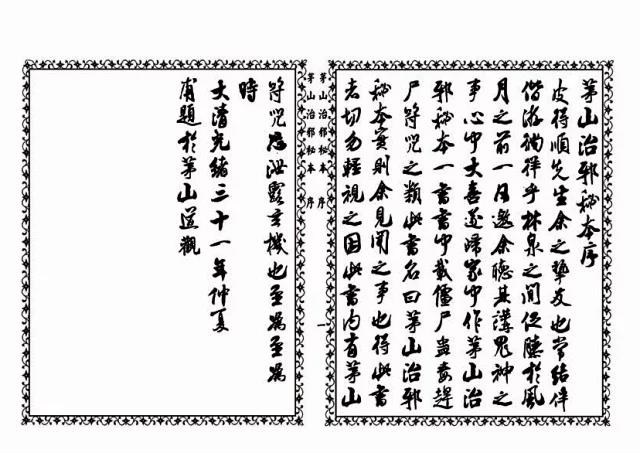 茅山治邪秘本序
皮得順先生余之摯友也常結伴
偕游徜徉乎林泉之間促膝於風
月之前一日邀余聽其講鬼神之
事心中大喜遂歸家中作茅山治
邪秘本一書書中載僵尸蠱毒趕
尸符咒之類此書名曰茅山治邪
秘本實則余見聞之事也得此書
者切勿輕視之因此書內有茅山
茅山治邪秘本 序
一
茅山治邪秘本 序
符咒恐泄露玄機也至爲至爲
時
大清光緒三十一年仲夏
甫題於茅山道觀